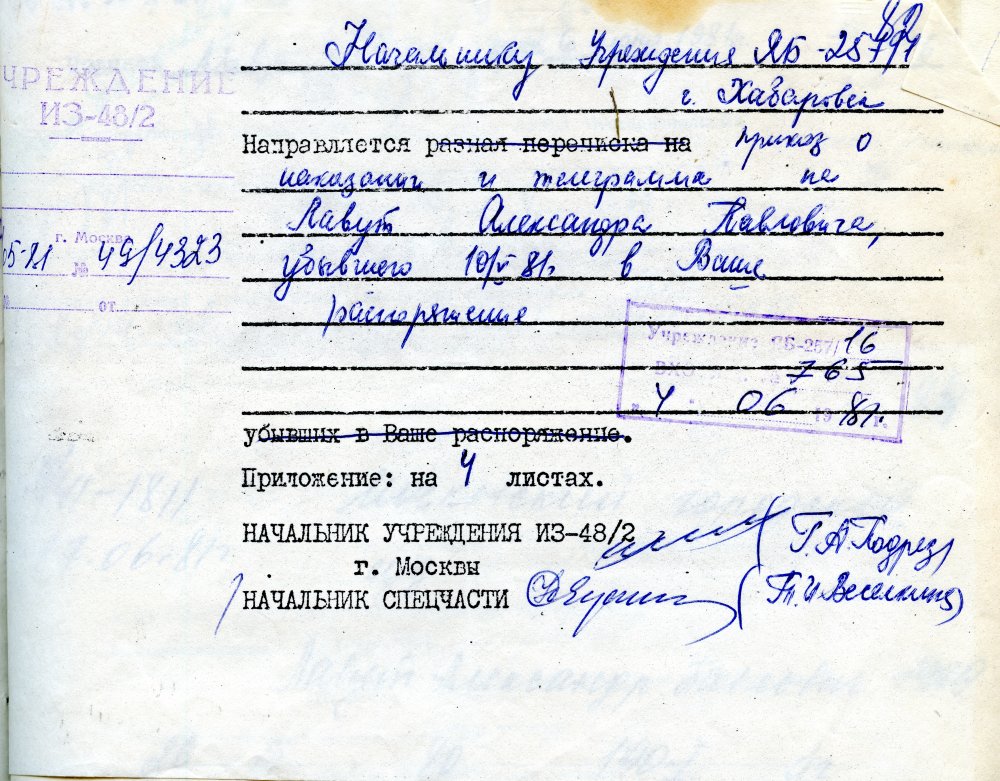 Начальнику Учреждения ЯБ-257/1
г. Хабаровск
УЧРЕЖДЕНИЕ
ИЗ-48/2
Направляется разная переписка на приказ о
наказании и телеграмма на
Лавут Александра Павловича,
г. Москва
05-81 № 49/4323
убывшего 10/V 81г. в Ваше
от
распоряжение
Учреждение ЯБ-257/16
ВХО 765
4 06 1981г.
убывших в Ваше распоряжение.
Приложение: на 4 листах.
НАЧАЛЬНИК УЧРЕЖДЕНИЯ ИЗ-48/2 (Г.А. Подрез)
г. Москвы
НАЧАЛЬНИК СПЕЦЧАСТИ (Т.И. Веселкина)